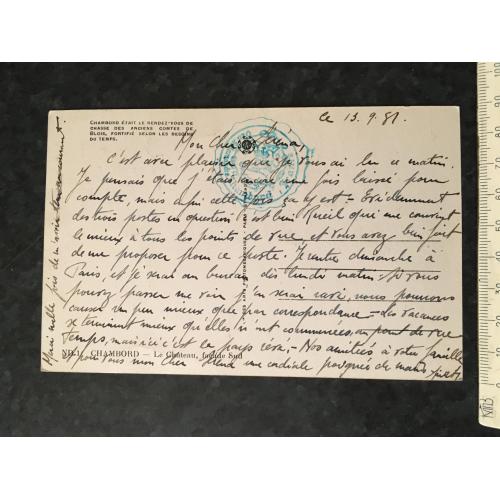 CHAMBORD ÉTAIT LE RENDEZ-VOUS DE
CHASSE DES ANCIENS COMTES DE
BLOIS, FORTIFIÉ SELON LES BESOINS
DU TEMPS.
Ce 13.9.51.
Mon Cher
C'est avec plaisir que je vous ai lu ce matin.
Je pensais que j'étais encore une fois laissé pour
compte, mais cette fois ça y est - Evidemment
des trois postes en question c'est bien Rueil qui me convient
le mieux à tous les points de vue et vous avez bien fait
de me proposer pour ce poste. Je rentre dimanche à
Paris, et je serai au bureau dès lundi matin. Si vous
pouvez passer me voir j'en serai ravi, nous pourrons
causer un peu mieux que par correspondance - Les vacances
se terminent mieux qu'elles n'ont commencées, au point de vue
temps, mais ici c'est le pays rêvé. - Nos amitiés à votre famille
et pour vous mon Cher une cordiale poignée de mains
Merci mille fois de m'avoir
CHAMBORD — Le Château, façade Sud